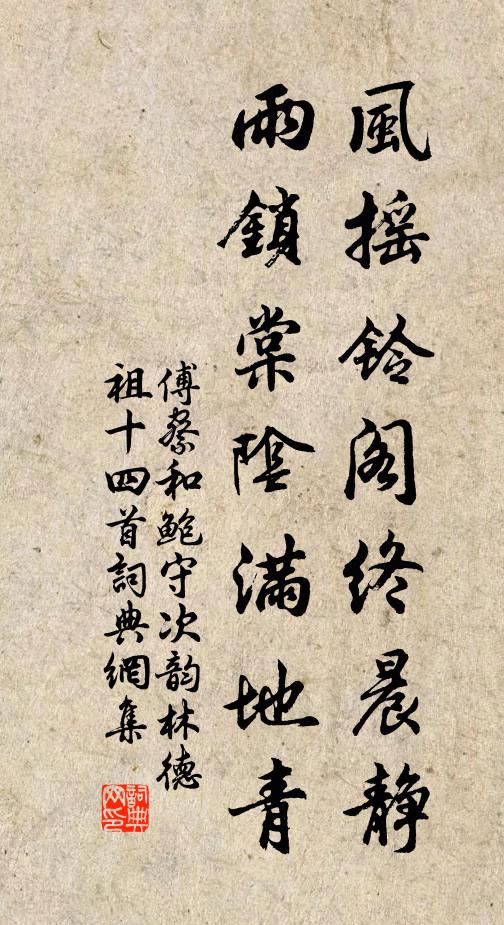 風搖鈴閣終晨靜
雨鎖棠陰滿地青
傅察和鮑守次韵林德
祖十四首詞典網集
詞典網印